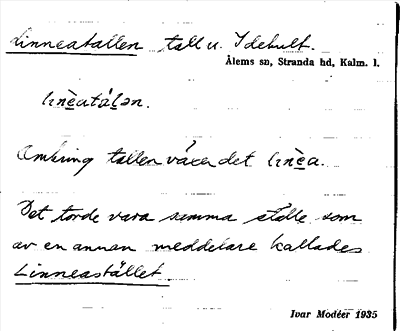 Linneatallen tall u. Idehult.
Ålems sn, Stranda hd, Kalm. l.
lınèatáḷən.
Omkring tallen växer det lınèa.
Det torde vara samma ställe som
av en annan meddelare kallades
Linneastället.
Ivar Modéer 1935